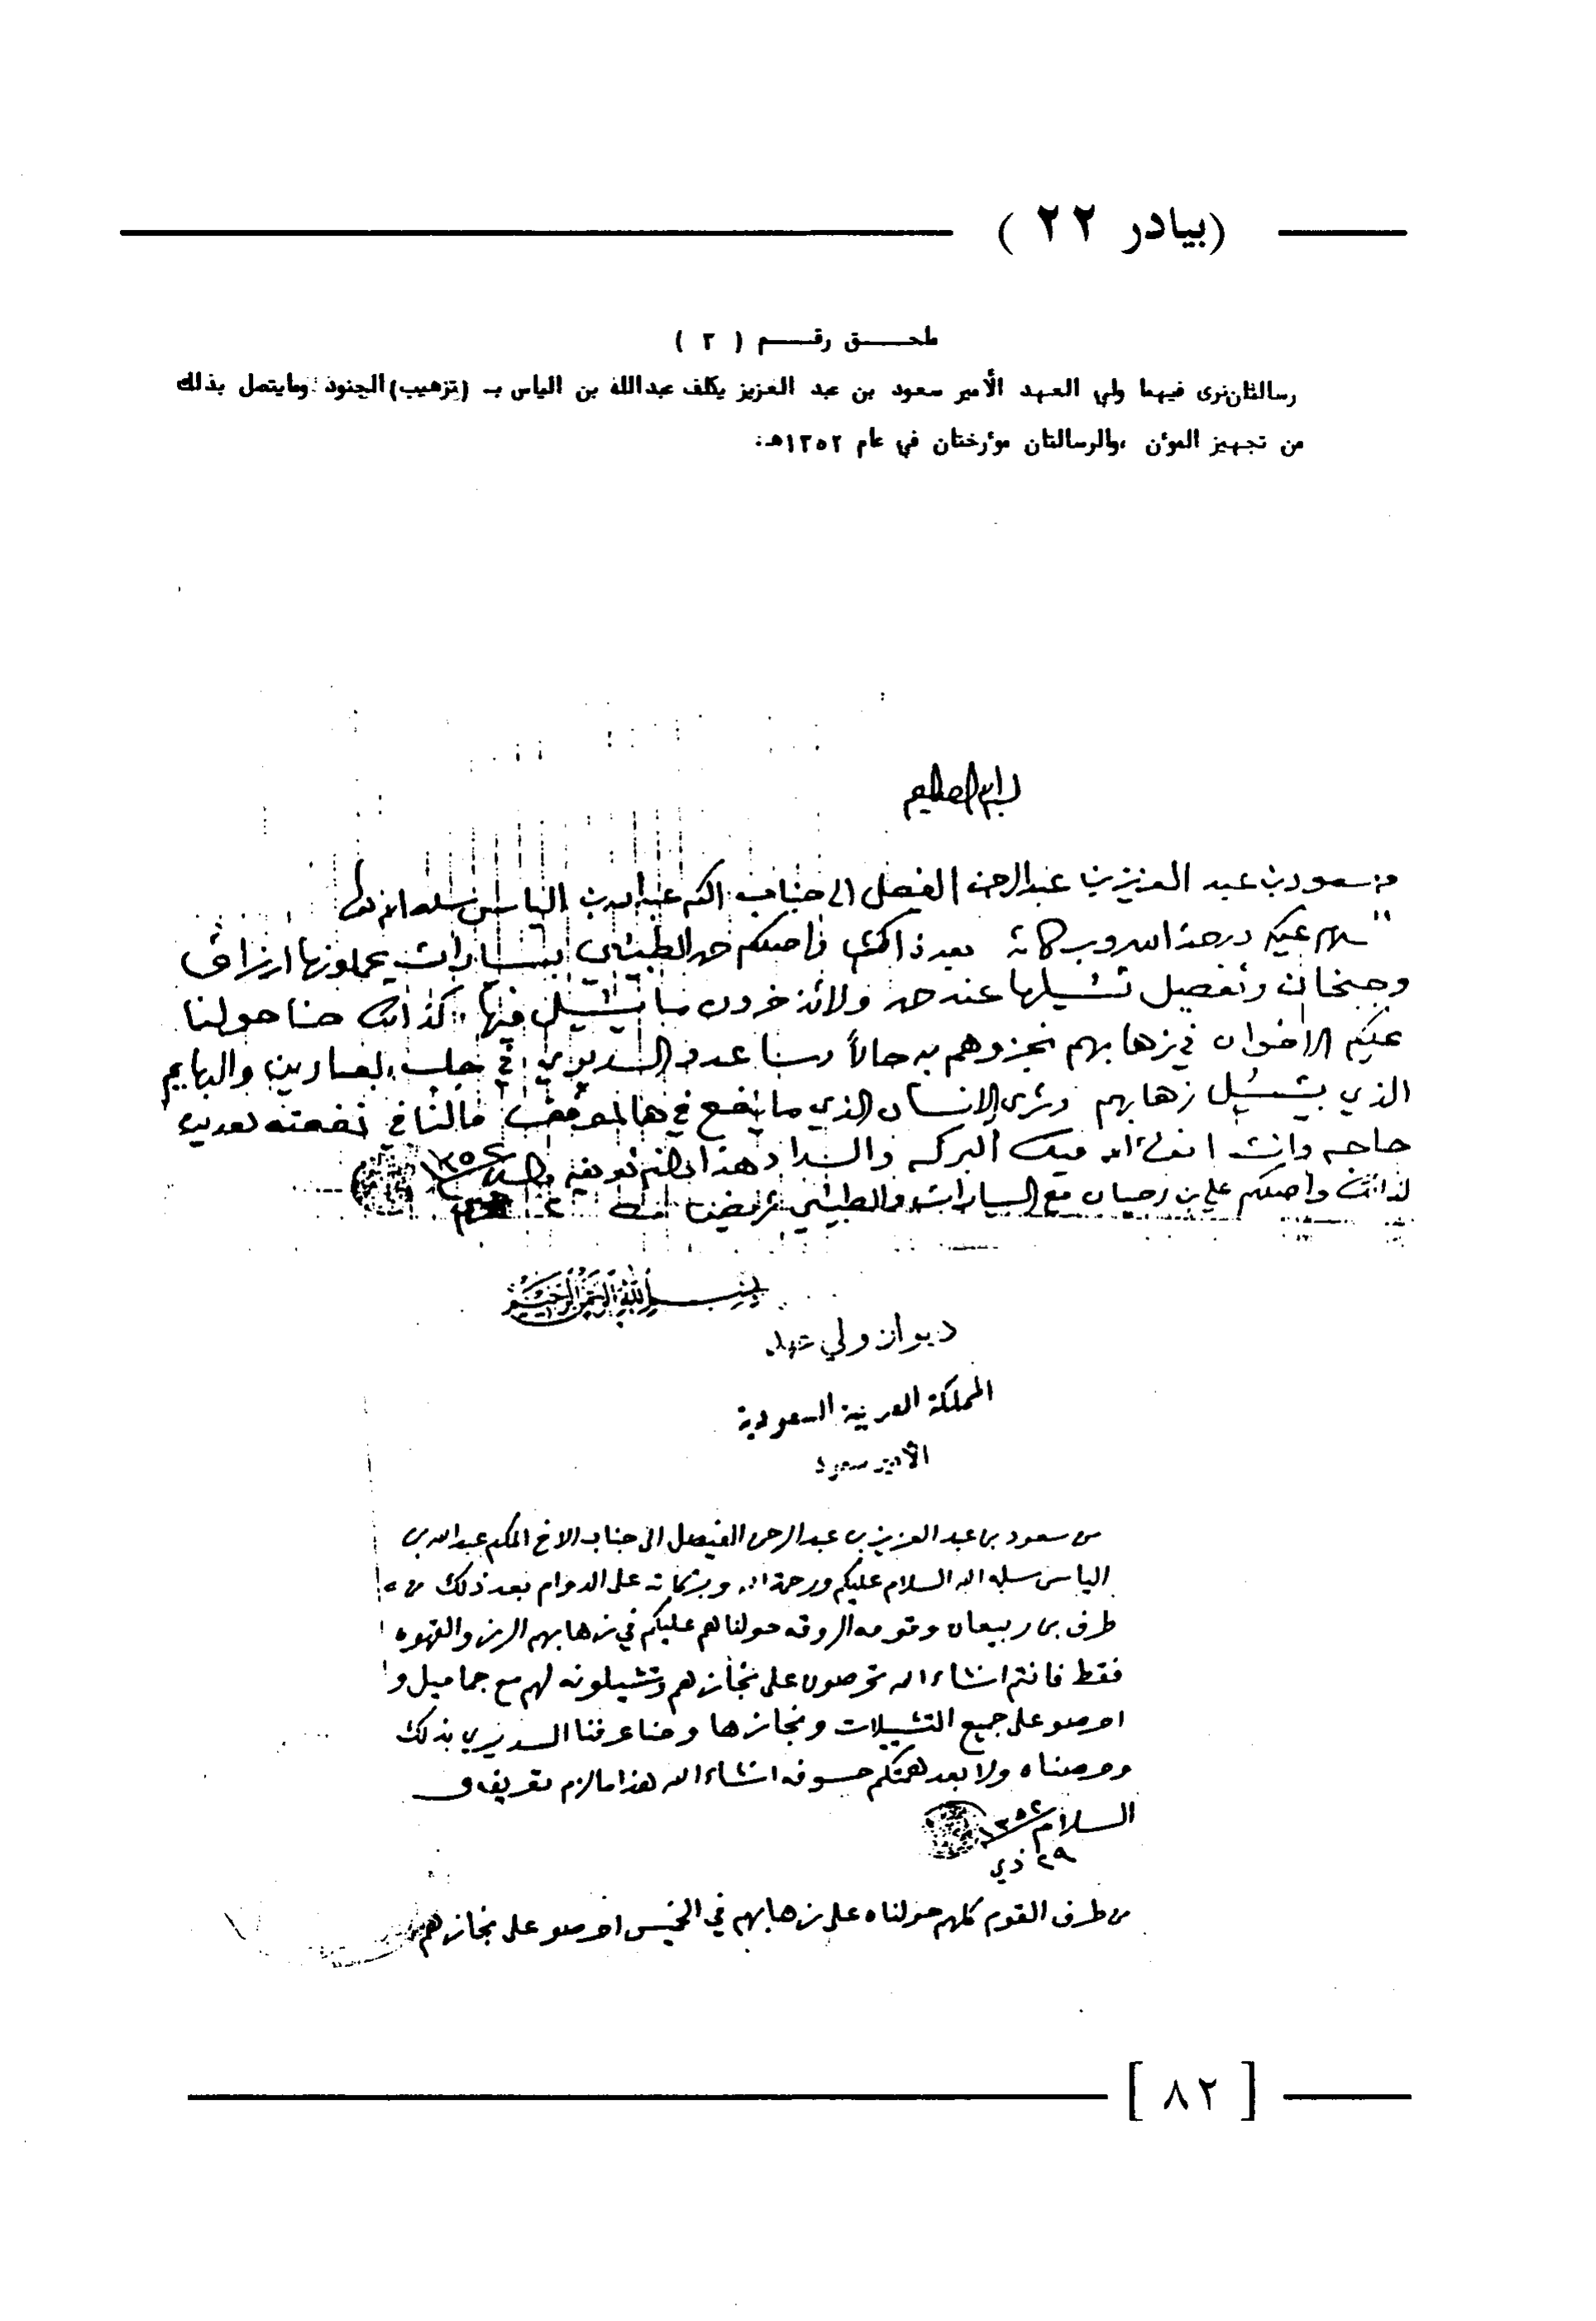 (بيادر ٢٢ )
ملحـــق رقــم ( ٢ )
رسالتان نرى فيهما ولي العهد الأمير سعود بن عبد العزيز يكلف عبدالله بن الياس بـ (تزهيب) الجنود وما يتصل بذلك
من تجهيز المؤن ،والرسالتان مؤرختان في عام ١٣٥٢هـ:
من سعود بن عبد العزيز بن عبدالرحمن الفيصل الى جناب المكرم عبدالله بن الياس سلمه الله تعالى
سلام عليكم ورحمة الله وبركاته بعد ذلك واصلكم الطبيشي بسيارات يحملونها ارزاق
وجبخان وتفصيل تشيلها عند ولا تذخرون ما ينشيل فيها كذلك حنا حولنا
عليكم الاخوان في زهابهم نجزوهم به حالاً وساعدوا السديري في جلب والبهايم
الذي بتشيل زهابهم وترى الانسان الذي ما ينفع في هالموقف مالنا في نفعته بعدين
حاجه وانت ان شاء الله فيك البركه والسداد هذا مالزم تعريفه والسلام ١٣٥٢
واصلكم علي بن رحيان مع السيارات والطبيشي
بسم الله الرحمن الرحيم
ديوان ولي عهد
المملكة العربية السعودية
الأمير سعود
من سعود بن عبد العزيز بن عبدالرحمن الفيصل الى جناب الاخ المكرم عبدالله بن
الياس سلمه الله السلام عليكم ورحمة الله وبركاته على الدوام بعد ذلك من
طرف بن ربيعان وقومه الروقه حولناهم عليكم في زهابهم الرز والقهوه
فقط فانتم انشاء الله تحرصون على نجازهم وتشيلونه لهم مع جماميل و
احرصو على جميع التشيلات ونجازها وحنا عرفنا السديري بذلك
وحرصناه ولا بعد همتكم حسوفه انشاء الله هذا مالزم تعريفه و
السلام ١٣٥٢
٢٩ ذي
من طرف القوم كلهم حولناه على زهابهم في الخميس احرصو على نجازهم
[ ٨٢ ]